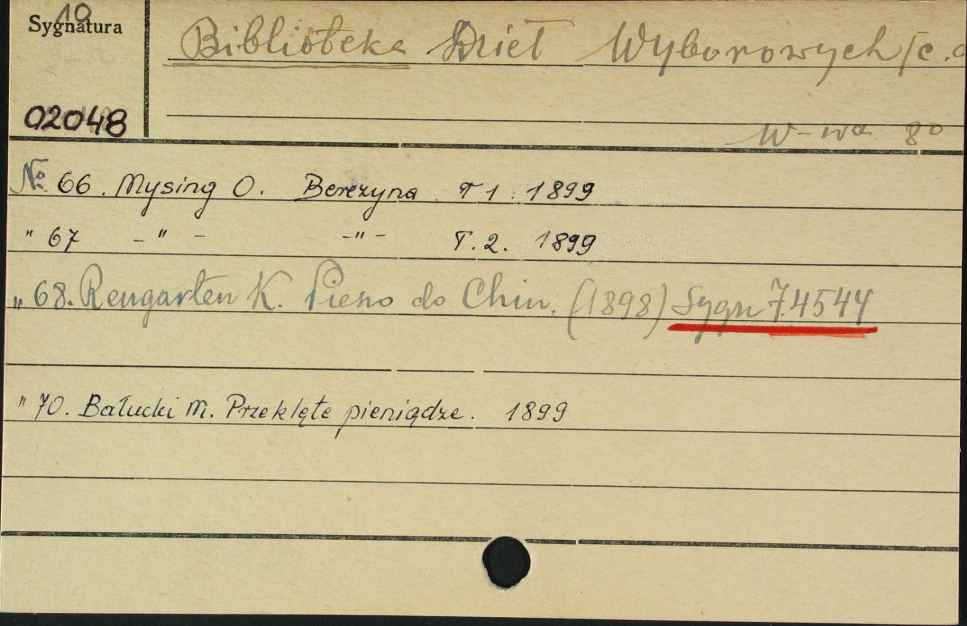 10
Sygnatura
Biblioteka Dzieł Wyborowych /c.d
02048
W-wa 8°
№ 66. Mysing O. Berezyna T 1. 1899
" 67 -"- -"- T. 2. 1899
" 68. Rengarten K. Pieszo do Chin. (1898) Sygn 7.4544
" 70. Bałucki M. Przeklęte pieniądze. 1899